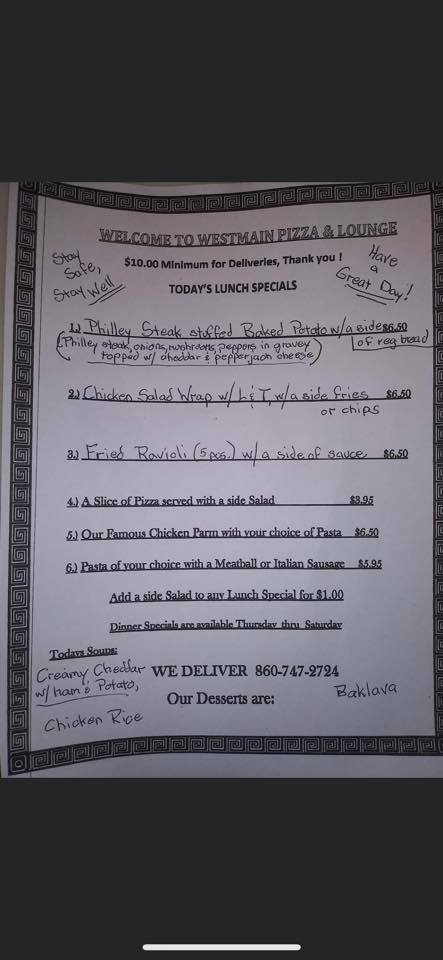 WELCOME TO WESTMAIN PIZZA & LOUNGE
Stay Safe, Stay Well
$10.00 Minimum for Deliveries, Thank you !
Have a Great Day!
TODAY'S LUNCH SPECIALS
1.) Philley Steak stuffed Baked Potato w/a side $6.50
of reg bread
(Philley steak, onions, mushrooms, peppers in gravey
topped w/ cheddar & pepperjach cheese)
2.) Chicken Salad Wrap w/ L&T, w/a side fries $6.50
or chips
3.) Fried Ravioli (5 pcs.) w/a side of sauce $6.50
4.) A Slice of Pizza served with a side Salad $3.95
5.) Our Famous Chicken Parm with your choice of Pasta $6.50
6.) Pasta of your choice with a Meatball or Italian Sausage $5.95
Add a side Salad to any Lunch Special for $1.00
Dinner Specials are available Thursday thru Saturday
Todays Soups:
Creamy Cheddar
w/ ham & Potato,
Chicken Rice
WE DELIVER 860-747-2724
Our Desserts are:
Baklava